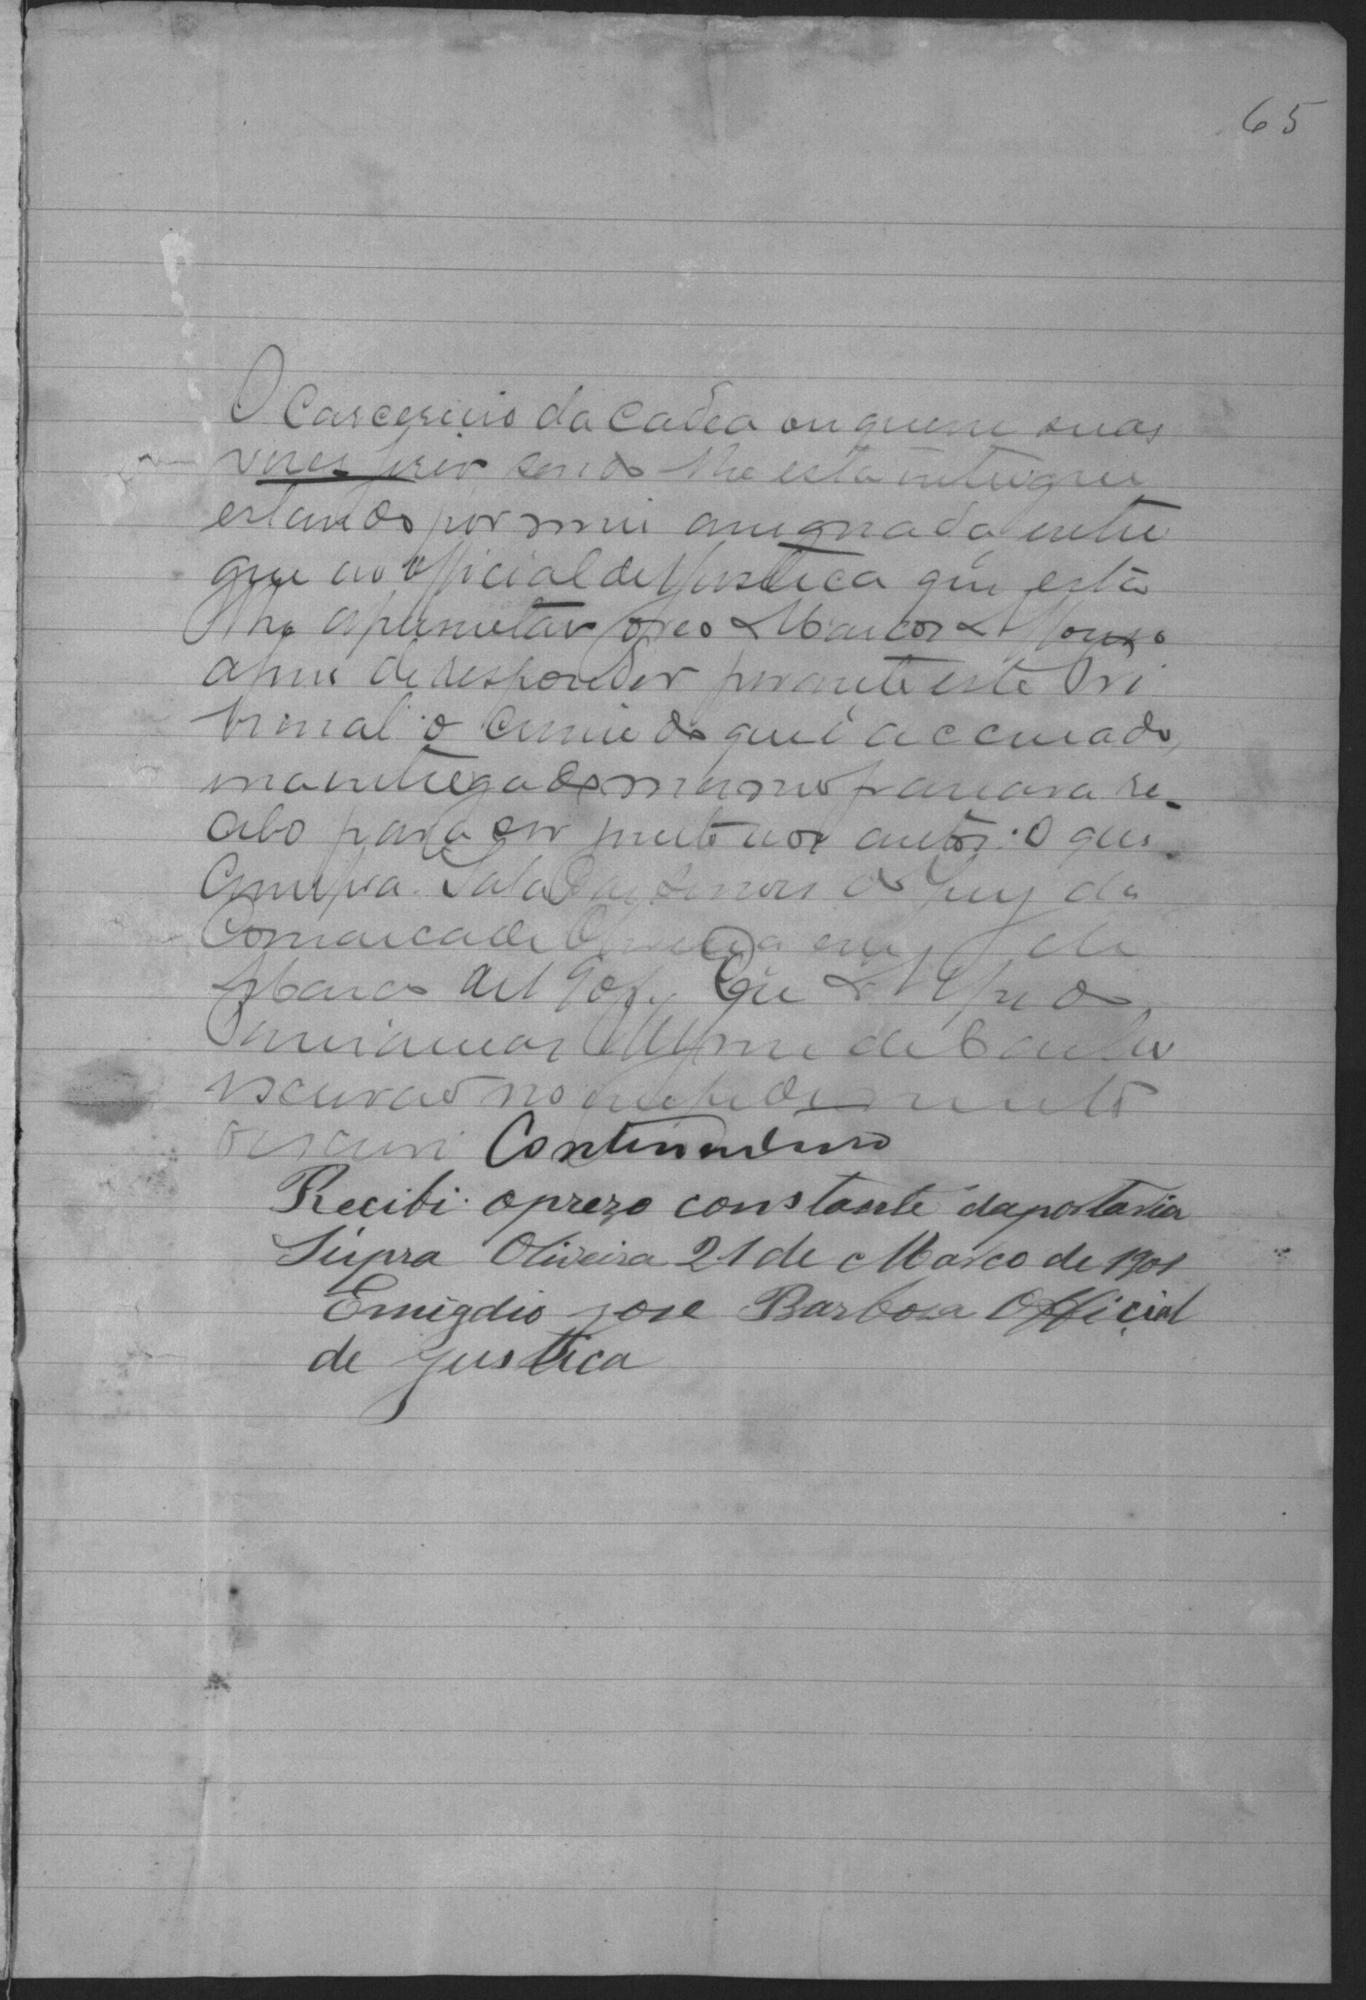 65
O Carcereiro da Cadea ou quem suas
veses fizer sendo lhe esta entregue
estando por mim assignada entre
gue ao official de Justica que esta
lhe apresentar o reo Marcos
afim de responder perante este Tri
bunal o crime de que é accusado,
na entrega do mesmo passara re-
cibo para ser junto aos autos. O que
Cumpra. Sala das do Jury da
Comarca de Oliveira em de
Marco de 1901. Eu
de
escrivão no impedimento
escrevi
Recibi o prezo constante da portaria
Supra Oliveira 21 de Marco de 1901
Emigdio jose Barbosa Official
de justica